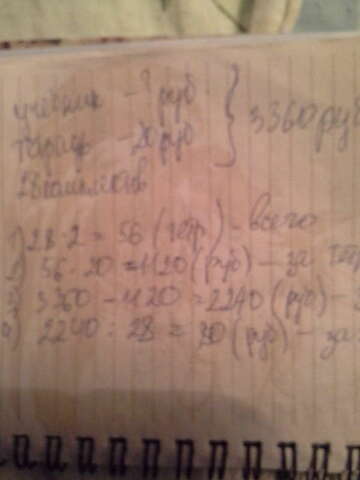 учебник - ? руб } 3360 руб
тетрадь - 20 руб
28 комплектов
1) 28 · 2 = 56 (тетр.) - всего
2) 56 · 20 = 1120 (руб) - за тетр
3) 3360 - 1120 = 2240 (руб) -
4) 2240 : 28 = 80 (руб) - за